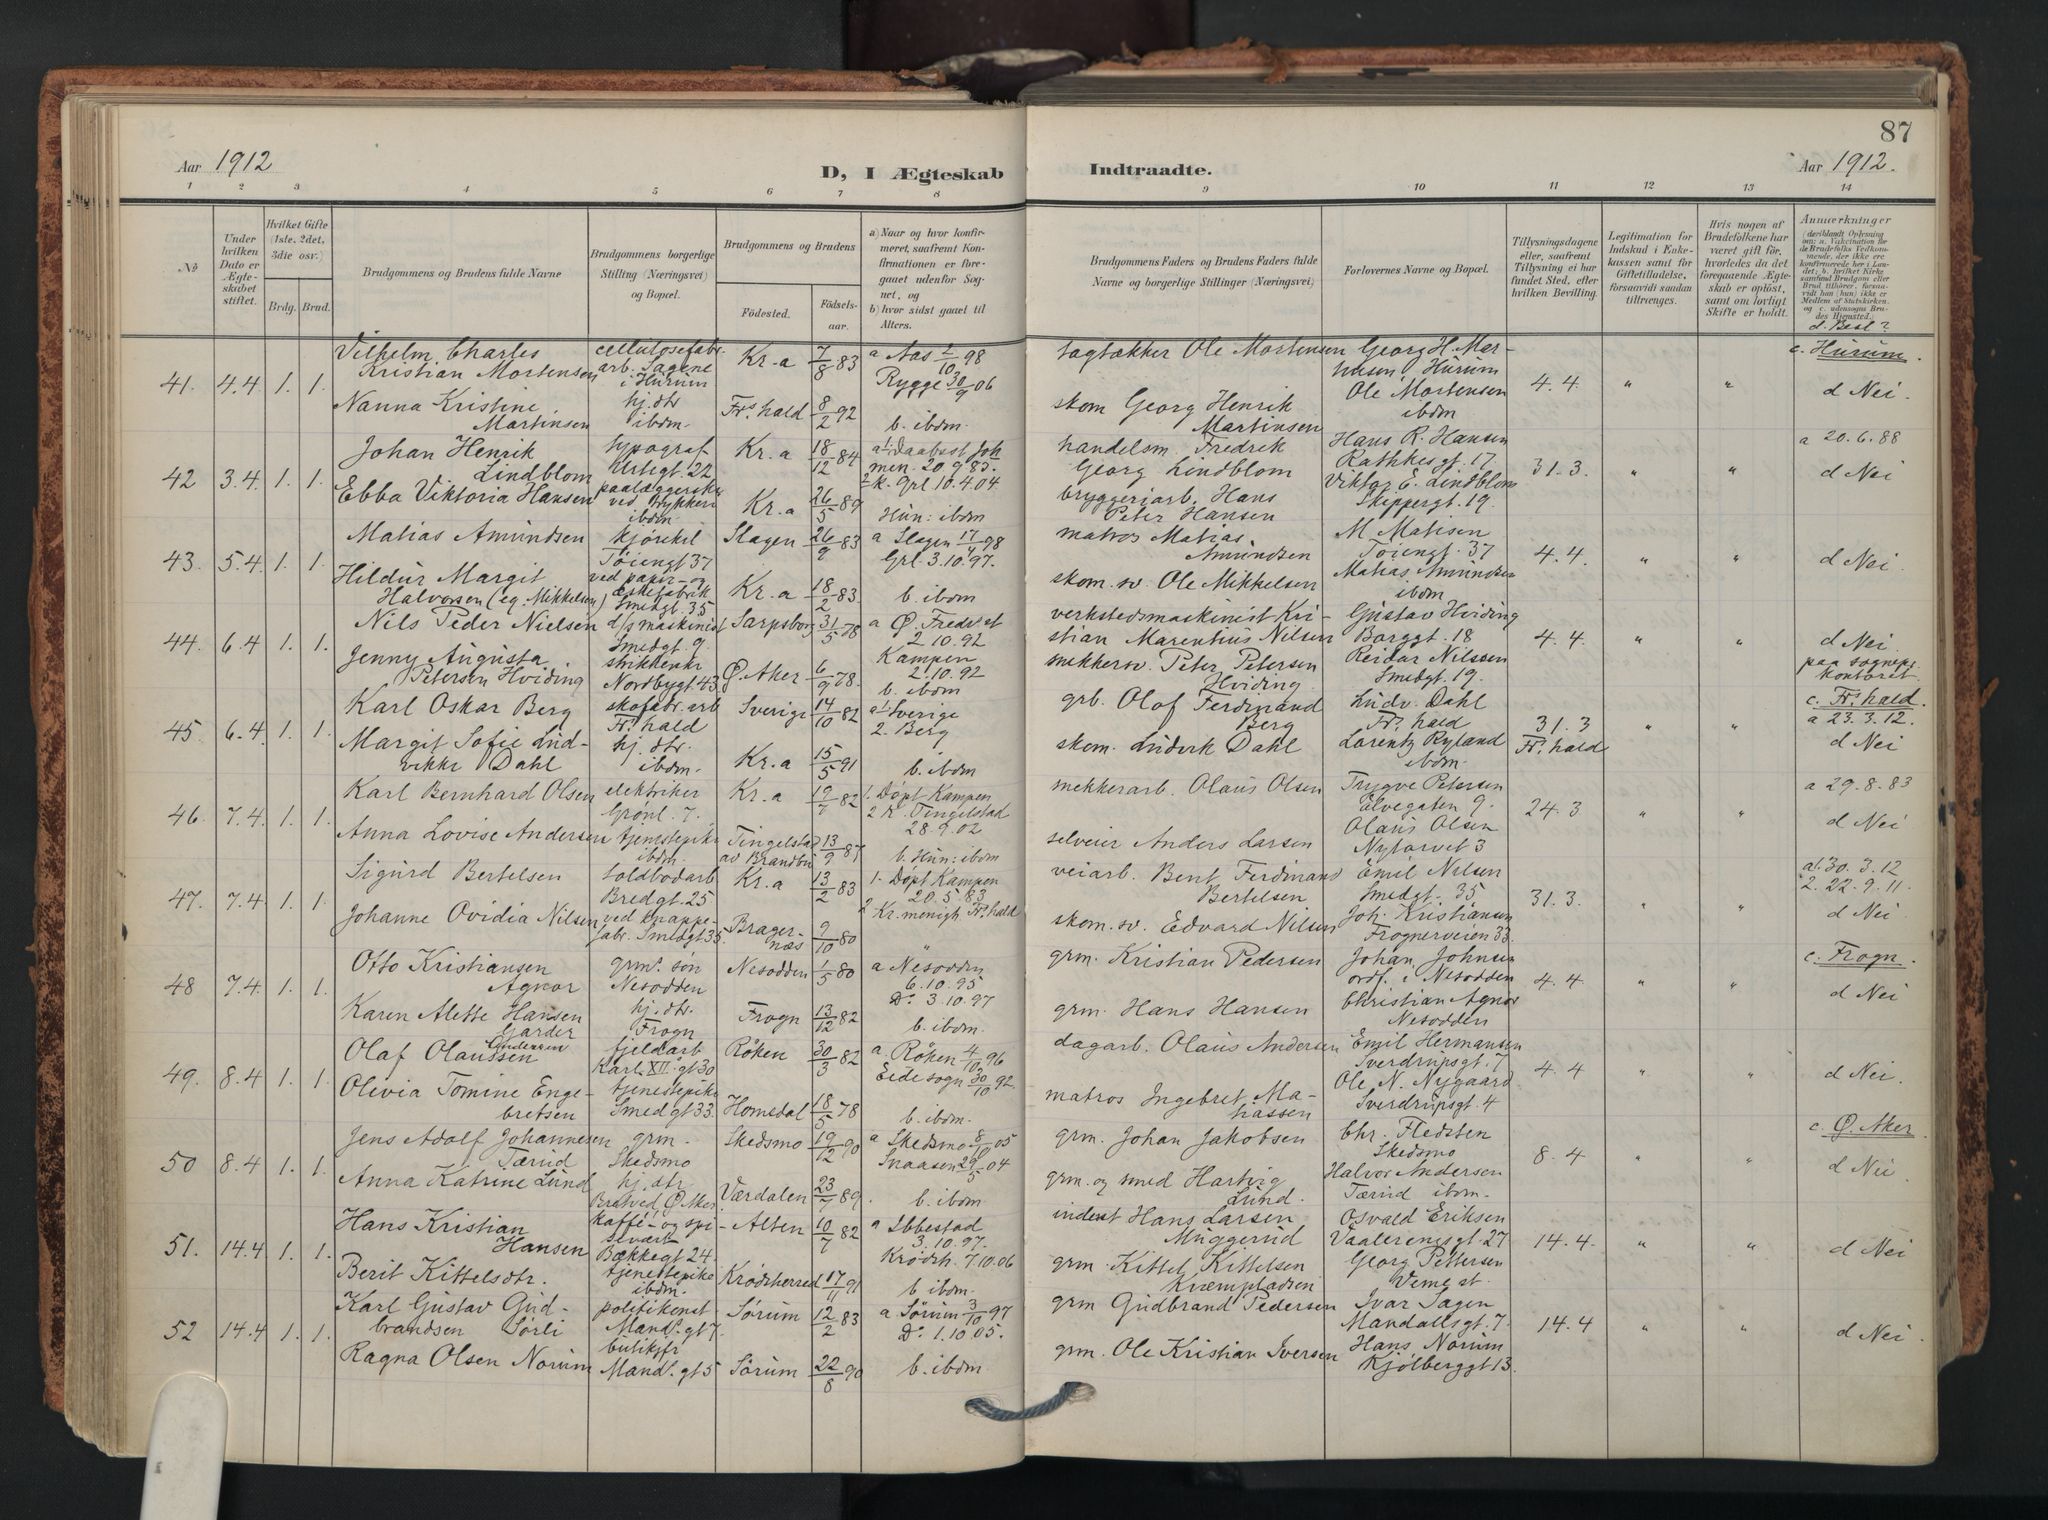 87
Aar 1912
D, I Ægteskab
Indtraadte.
Aar 1912.
1 2 3 4 5 6 7 8 9 10 11 12 13 14
No
Under hvilken Dato er Ægteskabet stiftet.
Hvilket Gifte (1ste, 2det, 3die osv.)
Brdg. Brud.
Brudgommens og Brudens fulde Navne
Brudgommens borgerlige Stilling (Næringsvei) og Bopæl.
Brudgommens og Brudens
Födested. Födselsaar.
a) Naar og hvor konfirmeret, saafremt Konfirmationen er foregaaet udenfor Sognet, og
b) hvor sidst gaaet til Alters.
Brudgommens Faders og Brudens Faders fulde Navne og borgerlige Stillinger (Næringsvei)
Forlovernes Navne og Bopæl.
Tillysningsdagene eller, saafremt Tillysning ei har fundet Sted, efter hvilken Bevilling.
Legitimation for Indskud i Enkekassen samt for Giftetilladelse, forsaavidt saadan tiltrænges.
Hvis nogen af Brudefolkene har været gift för, hvorledes da det foregaaende Ægteskab er oplöst, samt om lovligt Skifte er holdt.
Anmærkninger
d. Besl?
41. 4.4 1. 1.
Vilhelm Charles
Kristian Mortensen
cellulosefabr.
arb. Tagene
i Hurum
Kr.a 7/8 83
a Aas 2/10 98
Rygge 30/9 06
tagtækker Ole Mortensen
Georg H. Mar-
tinsen, Hurum
4.4 " "
c. Hurum.
d Nei.
Nanna Kristine
Martinsen
hj. dtr
ibdm.
Frs.hald 8/2 92
b. ibdm.
skom Georg Henrik
Martinsen
Ole Mortensen
ibdm
42 3.4. 1. 1.
Johan Henrik
Lindblom
typograf
Urtegt. 22
Kr.a 18/12 84
men. 20.9.85.
2 k. Grl 10.4.04
handelsm. Fredrik
Georg Lindblom
Hans R. Hansen
Rathkesgt. 17
31.3. " "
a 20.6.88
d Nei
Ebba Viktoria Hansen
ibdm.
Kr.a 26/5 89
Hun: ibdm
bryggeriarb. Hans
Peter Hansen
Viktor G. Lindblom
Skippergt. 19.
43. 5.4. 1. 1
Matias Amundsen
kjørekl
Tøiengt 37
Slagen 26/9 83
a Slagen 17/4 98
Grl. 3.10.97.
matros Matias
Amundsen
M. Matisen
Tøiengt. 37
4.4 " "
d Nei
Hildur Margit
Halvorsen (eg. Mikkelsen)
ved papir- og
æskefabrik
Smedgt. 35
Kr.a 18/2 83.
b. ibdm
skom. sv. Ole Mikkelsen
Matias Amundsen
ibdm
44. 6.4 1. 1.
Nils Peder Nielsen
d/s maskinist
Smedgt. 9.
Sarpsborg 31/5 78
a Ø. Fredr st
2.10.92
verkstedsmaskinist Kri-
stian Marentius Nilsen
Gustav Hviding
Borggt. 18
4.4. " "
d Nei.
paa sogneps.
kontoret.
Jenny Augusta
Petersen Hviding
Nordbygt. 43
Ø. Aker 6/9 78.
Kampen
2.10.92
b. ibdm
snekkersv. Peter Petersen
Hviding
Reidar Nilssen
Smedgt. 19.
45. 6.4. 1. 1
Karl Oskar Berg
skofabr. arb
Frs. hald
Sverige 14/10 82
a 1 Sverige
2. Berg
grb. Olof Ferdinand
Berg
Ludv. Dahl
Frs. hald
31.3
Frs. hald
c. Frs.hald
a 23.3.12.
d Nei
Margit Sofie Lud-
vikke Dahl
hj. dtr.
ibdm.
Kr.a 15/5 91
b. ibdm
skom. Ludvik Dahl
Lorentz Ryland
ibdm.
46. 7.4. 1. 1.
Karl Bernhard Olsen
elektriker
Grønl. 7.
Kr.a 19/7 82
1. Døpt Kampen
2 k. Tingelstad
28.9.02
snekkerarb. Olaus Olsen
Trygve Petersen
Elvegaten 9.
24.3 " "
a 29.8.83
d Nei
Anna Lovise Andersen
tjenestepike
ibdm.
Tingelstad
av Brandbu 13/9 87
b. Hun: ibdm
selveier Anders Larsen
Olaus Olsen
Nytorvet 3
47. 7.4. 1. 1.
Sigurd Bertelsen
toldbodarb
Bredgt. 25
Kr.a 13/2 83
1. Døpt Kampen
20.5.83
2 Kr. menigh Frs.hald
veiarb. Bent Ferdinand
Bertelsen
Emil Nilsen
Smedgt. 35
31.3. " "
a1. 30.3.12
2. 22.9.11.
d Nei
Johanne Ovidia Nilsen
ved knappe-
fabr. Smedgt 35.
Brager-
næs 9/10 80
"
skom. sv. Edvard Nilsen
Joh. Kristiansen
Frognerveien 33.
48 7.4. 1. 1.
Otto Kristiansen
Agnor
grms. søn
Nesodden
Nesodden 1/5 80
a Nesodden
6.10.95
Do. 3.10.97
grm. Kristian Pedersen
Johan Johnsen
ordf. i Nesodden
4.4 " "
c. Frogn.
d Nei
Karen Alette Hansen
Garder
hj. dtr.
Frogn
Frogn 13/12 82
b. ibdm.
grm. Hans Hansen
Christian Agnor
Nesodden
49. 8.4 1. 1.
Olaf Olaussen
Andersen
fjeldarb
Karl XII. gt 30
Røken 30/3 82
a. Røken 4/10 96
Eide sogn 30/10 92.
dagarb. Olaus Andersen
Emil Hermansen
Sverdrupsgt. 7
4.4 " "
d Nei.
Olivia Tomine Enge-
bretsen
tjenestepike
Smedgt 33.
Homsdal 18/5 78
b. ibdm.
matros Ingebret Ma-
thiassen
Ole N. Nygaard
Sverdrupsgt. 4
50 8.4 1. 1.
Jens Adolf Johannesen
Tærud
grm.
Skedsmo
Skedsmo 19/12 90
a Skedsmo 8/10 05
Snaasen 29/5 04
grm. Johan Jakobsen
Chr. Fledsten
Skedsmo
8.4 " "
c. Ø. Aker
d Nei
Anna Katrine Lund
hj. dtr
Bratved Ø. Aker
Værdalen 23/7 89
b. ibdm
grm. og smed Hartvig
Lund.
Halvor Andersen
Tærud ibdm.
51. 14.4 1. 1.
Hans Kristian
Hansen
kaffé- og spi-
sevært
Bækkegt 24.
Alten 10/7 82
a Ibbestad
3.10.97.
Krødsh. 7.10.06
inderst Hans Larsen
Muggerud
Osvald Eriksen
Vaalerengsgt. 27
14.4. " "
d Nei
Berit Kittelsdtr.
tjenestepike
ibdm.
Krødsherred 17/11 91
b. ibdm.
grm. Kittel Kittelsen
Kræmpladsen
Georg Pettersen
Veme st.
52 14.4 1. 1.
Karl Gustav Gud-
brandsen Sørli
politikonst
Mands. gt 7
Sørum 12/2 83
a Sørum 3/10 97
Do. 1.10.05.
grm Gudbrand Pedersen
Ivar Sagen
Mandalls gt. 7
14.4 " "
d Nei
Ragna Olsen Norum
butikjfr
Mands. gt 5
Sørum 22/8 90
b. ibdm
grm. Ole Kristian Iversen
Hans Norum
Kjølberggt 13.